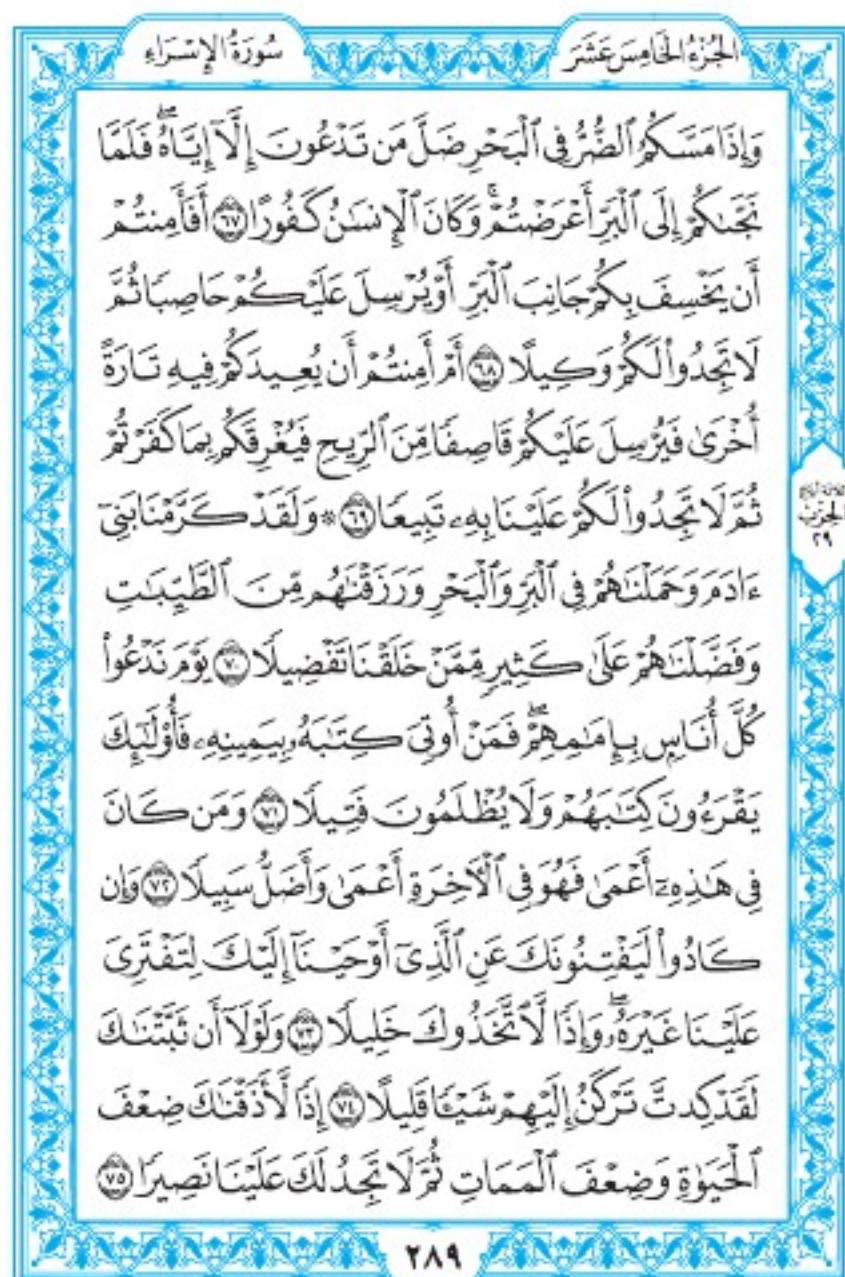 الجُزْءُ الخَامِسَ عَشَرَ
سُورَةُ الإِسْرَاءِ
وَإِذَا مَسَّكُمُ ٱلضُّرُّ فِي ٱلْبَحْرِ ضَلَّ مَن تَدْعُونَ إِلَّآ إِيَّاهُۖ فَلَمَّا
نَجَّىٰكُمْ إِلَى ٱلْبَرِّ أَعْرَضْتُمْۚ وَكَانَ ٱلْإِنسَٰنُ كَفُورًا ٦٧ أَفَأَمِنتُمْ
أَن يَخْسِفَ بِكُمْ جَانِبَ ٱلْبَرِّ أَوْ يُرْسِلَ عَلَيْكُمْ حَاصِبًا ثُمَّ
لَا تَجِدُوا۟ لَكُمْ وَكِيلًا ٦٨ أَمْ أَمِنتُمْ أَن يُعِيدَكُمْ فِيهِ تَارَةً
أُخْرَىٰ فَيُرْسِلَ عَلَيْكُمْ قَاصِفًا مِّنَ ٱلرِّيحِ فَيُغْرِقَكُم بِمَا كَفَرْتُمْ
ثُمَّ لَا تَجِدُوا۟ لَكُمْ عَلَيْنَا بِهِۦ تَبِيعًا ٦٩ ۞ وَلَقَدْ كَرَّمْنَا بَنِىٓ
ءَادَمَ وَحَمَلْنَٰهُمْ فِي ٱلْبَرِّ وَٱلْبَحْرِ وَرَزَقْنَٰهُم مِّنَ ٱلطَّيِّبَٰتِ
وَفَضَّلْنَٰهُمْ عَلَىٰ كَثِيرٍ مِّمَّنْ خَلَقْنَا تَفْضِيلًا ٧٠ يَوْمَ نَدْعُوا۟
كُلَّ أُنَاسٍۭ بِإِمَٰمِهِمْۖ فَمَنْ أُوتِىَ كِتَٰبَهُۥ بِيَمِينِهِۦ فَأُو۟لَٰٓئِكَ
يَقْرَءُونَ كِتَٰبَهُمْ وَلَا يُظْلَمُونَ فَتِيلًا ٧١ وَمَن كَانَ
فِي هَٰذِهِۦٓ أَعْمَىٰ فَهُوَ فِي ٱلْءَاخِرَةِ أَعْمَىٰ وَأَضَلُّ سَبِيلًا ٧٢ وَإِن
كَادُوا۟ لَيَفْتِنُونَكَ عَنِ ٱلَّذِىٓ أَوْحَيْنَآ إِلَيْكَ لِتَفْتَرِىَ
عَلَيْنَا غَيْرَهُۥۖ وَإِذًا لَّٱتَّخَذُوكَ خَلِيلًا ٧٣ وَلَوْلَآ أَن ثَبَّتْنَٰكَ
لَقَدْ كِدتَّ تَرْكَنُ إِلَيْهِمْ شَيْـًٔا قَلِيلًا ٧٤ إِذًا لَّأَذَقْنَٰكَ ضِعْفَ
ٱلْحَيَوٰةِ وَضِعْفَ ٱلْمَمَاتِ ثُمَّ لَا تَجِدُ لَكَ عَلَيْنَا نَصِيرًا ٧٥
الحِزْب
٢٩
٢٨٩